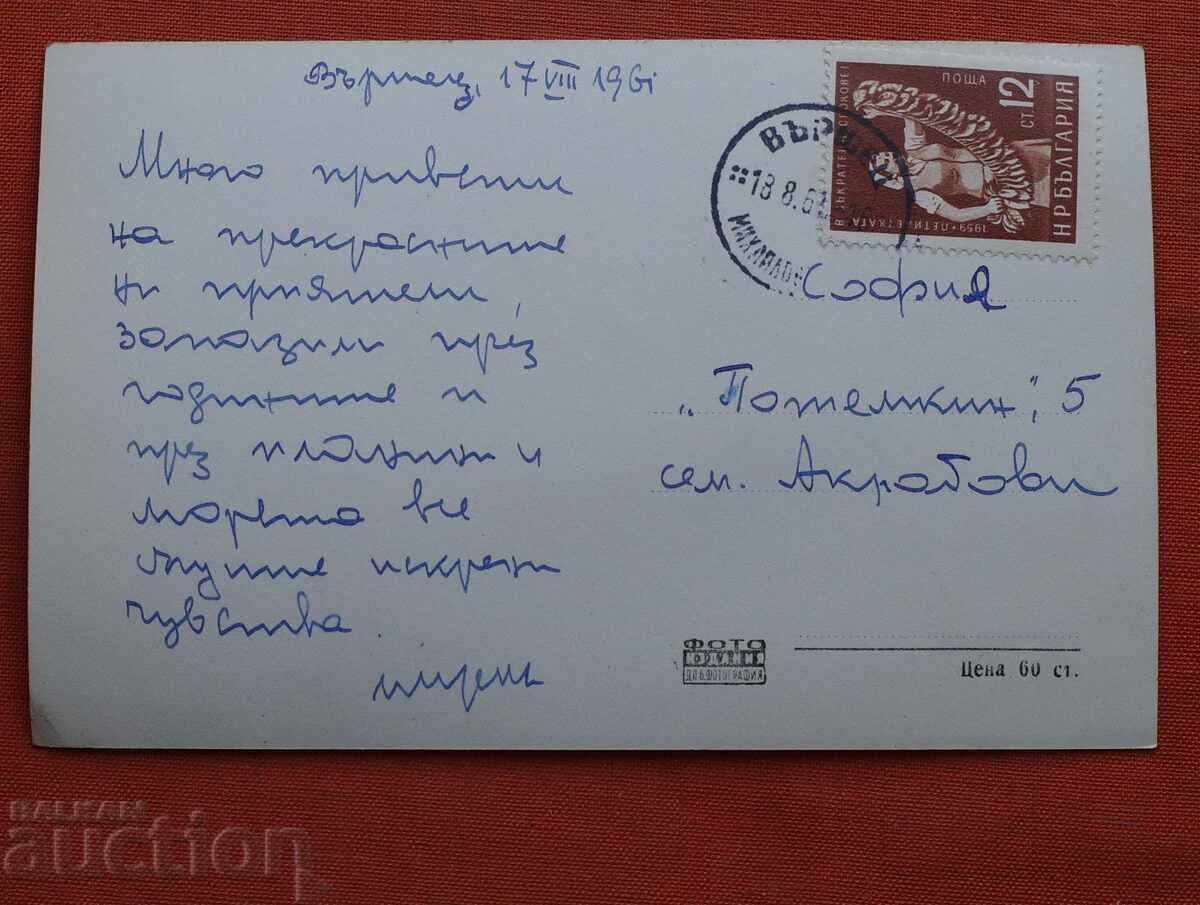 Вършец, 17 VIII 1961
Много привети
на прекрасните
ни приятели,
запазили през
годините и
през планини и
морета все
същите искрени
чувства.
София
„Потемкин", 5
сем. Акробови
ВЪРШЕЦ
18 8.61
МИХАЙЛОВ
ПОЩА
СТ. 12
НР БЪЛГАРИЯ
1959 • ПЕТИЛЕТКАТА В СЪКРАТЕНИ СРОКОВЕ!
ФОТО
ДПК БФОТОГРАФИЯ
Цена 60 ст.
BALKAN
auction